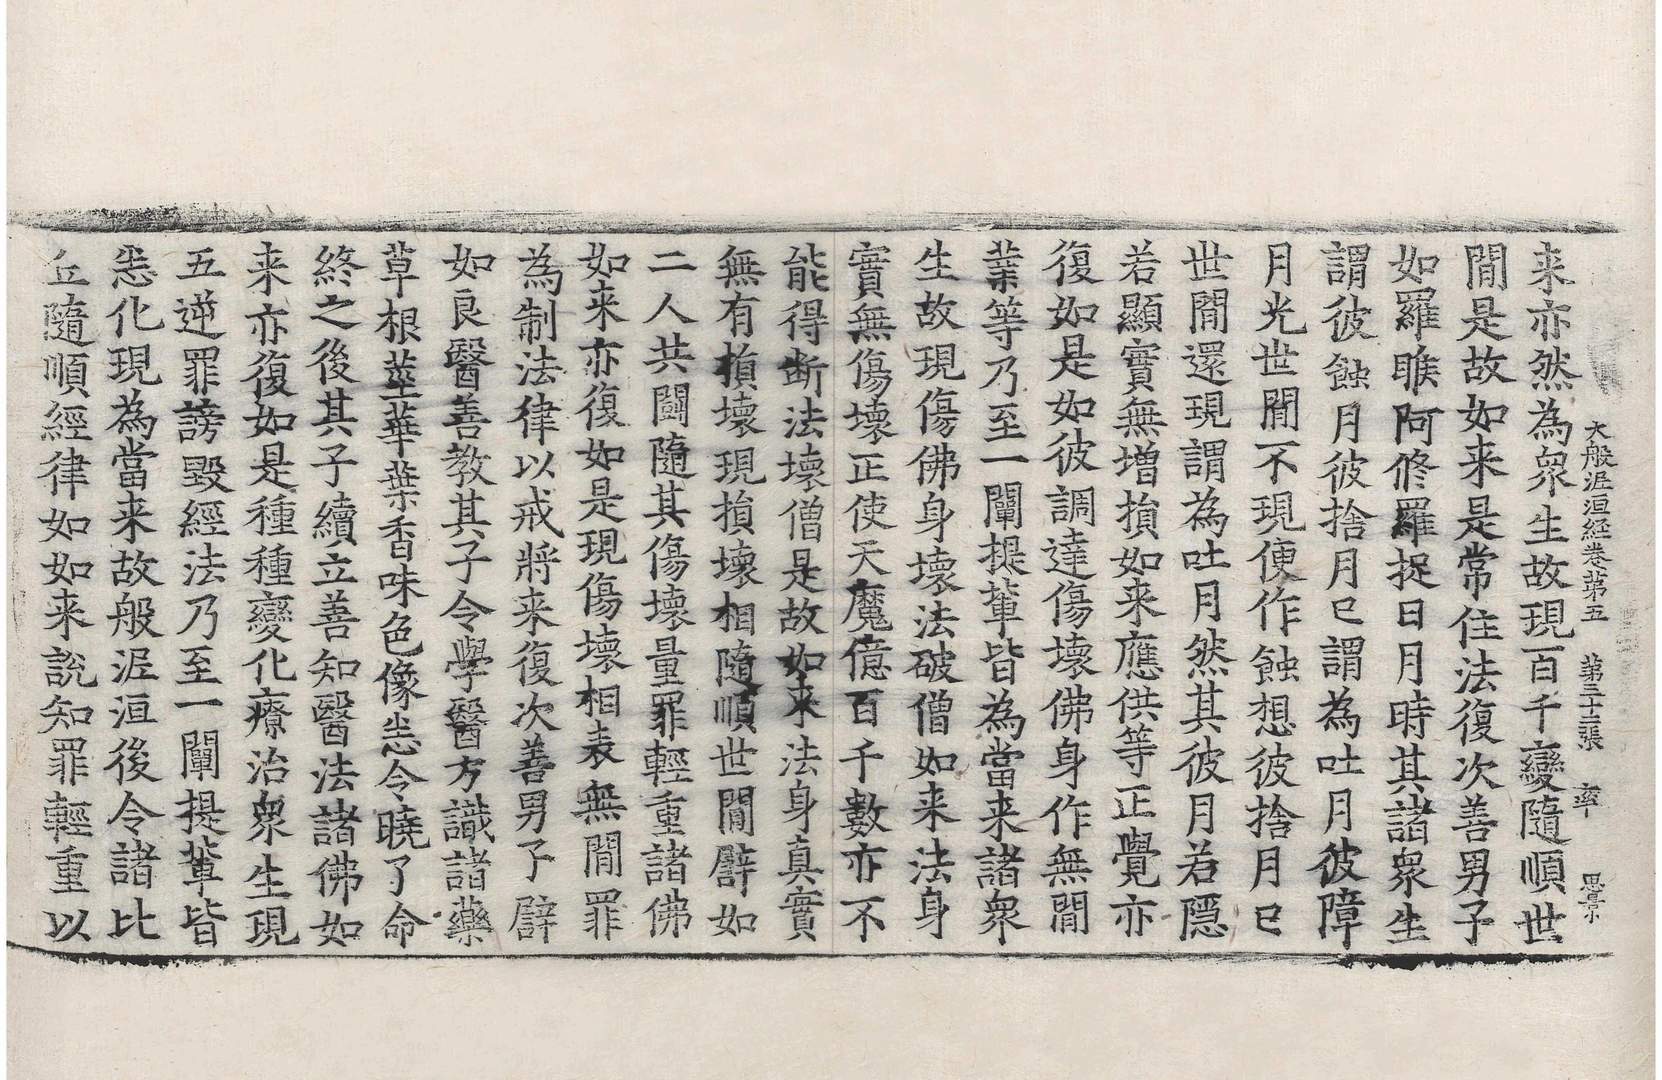 大般泥洹経卷苐五　苐三十二張　率　思景
来亦然為衆生故現百千變隨順世
間是故如来是常住法復次善男子
如羅睺阿修羅捉日月時其諸衆生
謂彼蝕月彼捨月已謂為吐月彼障
月光世間不現便作蝕想彼捨月已
世間還現謂為吐月然其彼月若隱
若顯實無増損如来應供等正覺亦
復如是如彼調達傷壞佛身作無間
業等乃至一闡提輩皆為當来諸衆
生故現傷佛身壞法破僧如来法身
實無傷壞正使天魔億百千數亦不
能得断法壞僧是故如来法身真實
無有損壞現損壞相隨順世間譬如
二人共鬪隨其傷壞量罪輕重諸佛
如来亦復如是現傷壞相表無間罪
為制法律以戒將来復次善男子譬
如良醫善教其子令學醫方識諸藥
草根莖華葉香味色像悉令曉了命
終之後其子續立善知醫法諸佛如
来亦復如是種種變化療治衆生現
五逆罪謗毀經法乃至一闡提輩皆
悉化現為當来故般泥洹後令諸比
丘隨順經律如如来說知罪輕重以